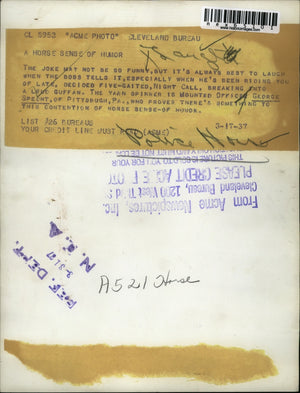 CL 5952 "ACME PHOTO" CLEVELAND BUREAU
A HORSE SENSE OF HUMOR
THE JOKE MAY NOT BE SO FUNNY, BUT IT'S ALWAYS BEST TO LAUGH
WHEN THE BOSS TELLS IT, ESPECIALLY WHEN HE'S BEEN RIDING YOU
OF LATE, DECIDED FIVE-GAITED, NIGHT CALL, BREAKING INTO
A LOUD GUFFAW. THE YARN SPINNER IS MOUNTED OFFICER GEORGE
SPECHT, OF PITTSBURGH, PA., WHO PROVES THERE'S SOMETHING TO
THIS CONTENTION OF HORSE-SENSE-OF HUMOR.
LIST 725 BUREAUS
YOUR CREDIT LINE JUST (ACME)
3-17-37
THIS PICTURE IS SOLD TO YOU FOR YOUR
PLEASE CREDIT ACME
Cleveland Bureau, 1200 West Third St
From Acme Newspictures, Inc.
REF. DEPT.
N. E. A.
A521 Horse